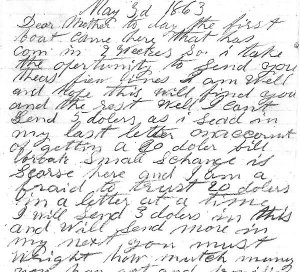 May 3d 1863
Dear Mother to day the first
boat came here that has
com in 2 weekes so i take
the opertunity to send you
theas fiew lines I am well
and hope this will find you
and the rest well I cant
send 3 dolers, as i sead in
my last letter on account
of gettin a 20 doler bill
broak small change is
scorse here and I am a
fraid to trust 20 dolers
in a letter at a time
I will send 3 dolers in this
and will send more in
my next you must
wright how mutch money
you